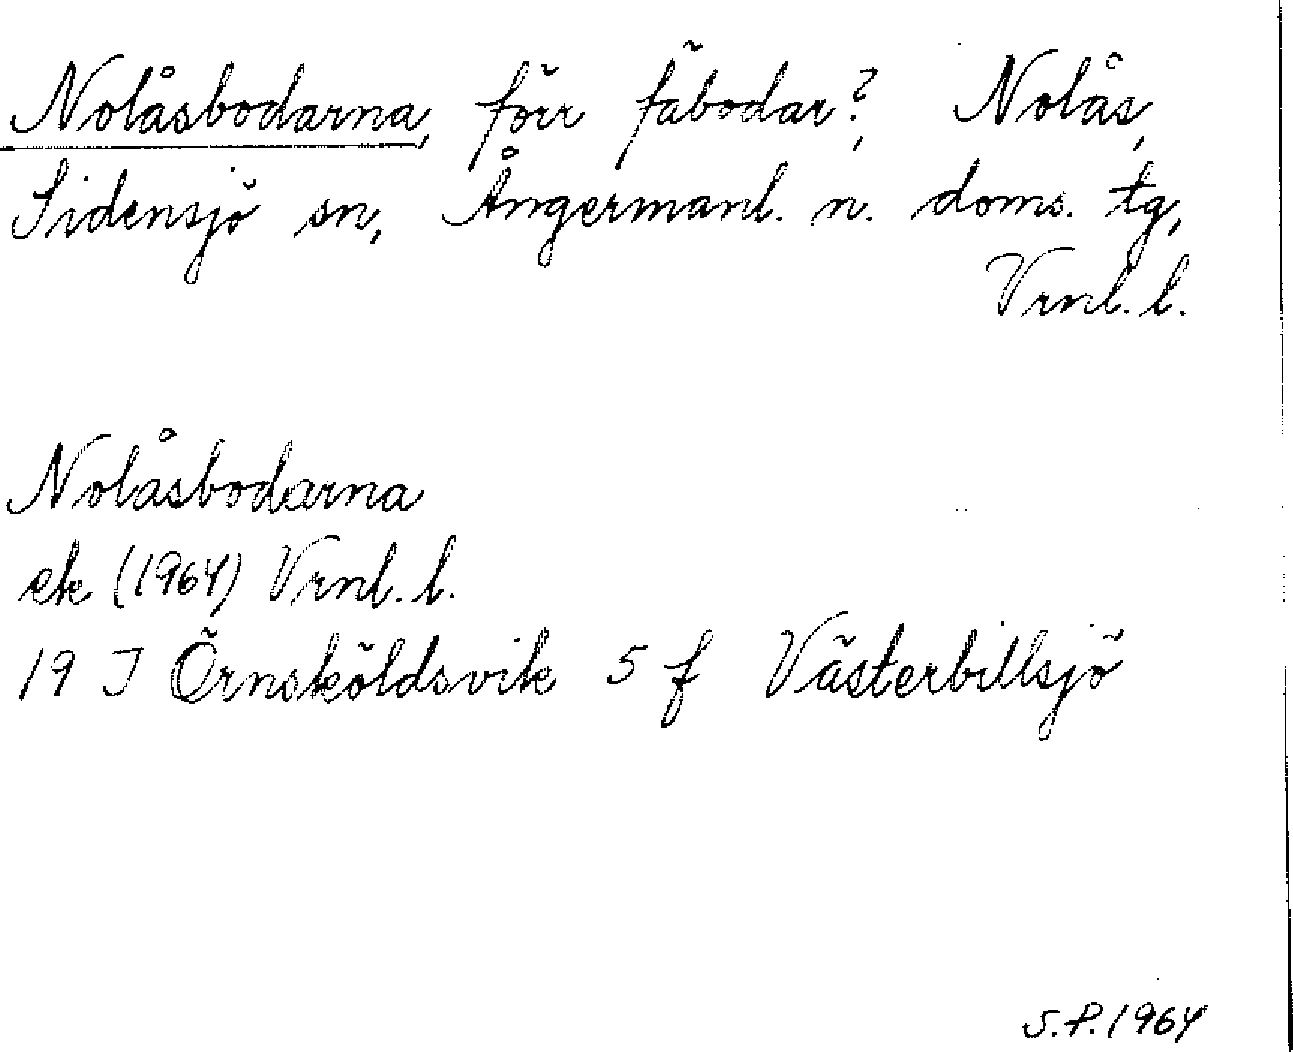 Nolåsbodarna, förr fäbodar?, Nolås,
Sidensjö sn, Ångermanl. n. doms. tg,
Vrnl. l.
Nolåsbodarna
ek (1964) Vrnl. l.
19 J Örnsköldsvik 5 f Västerbillsjö
S.P. 1964